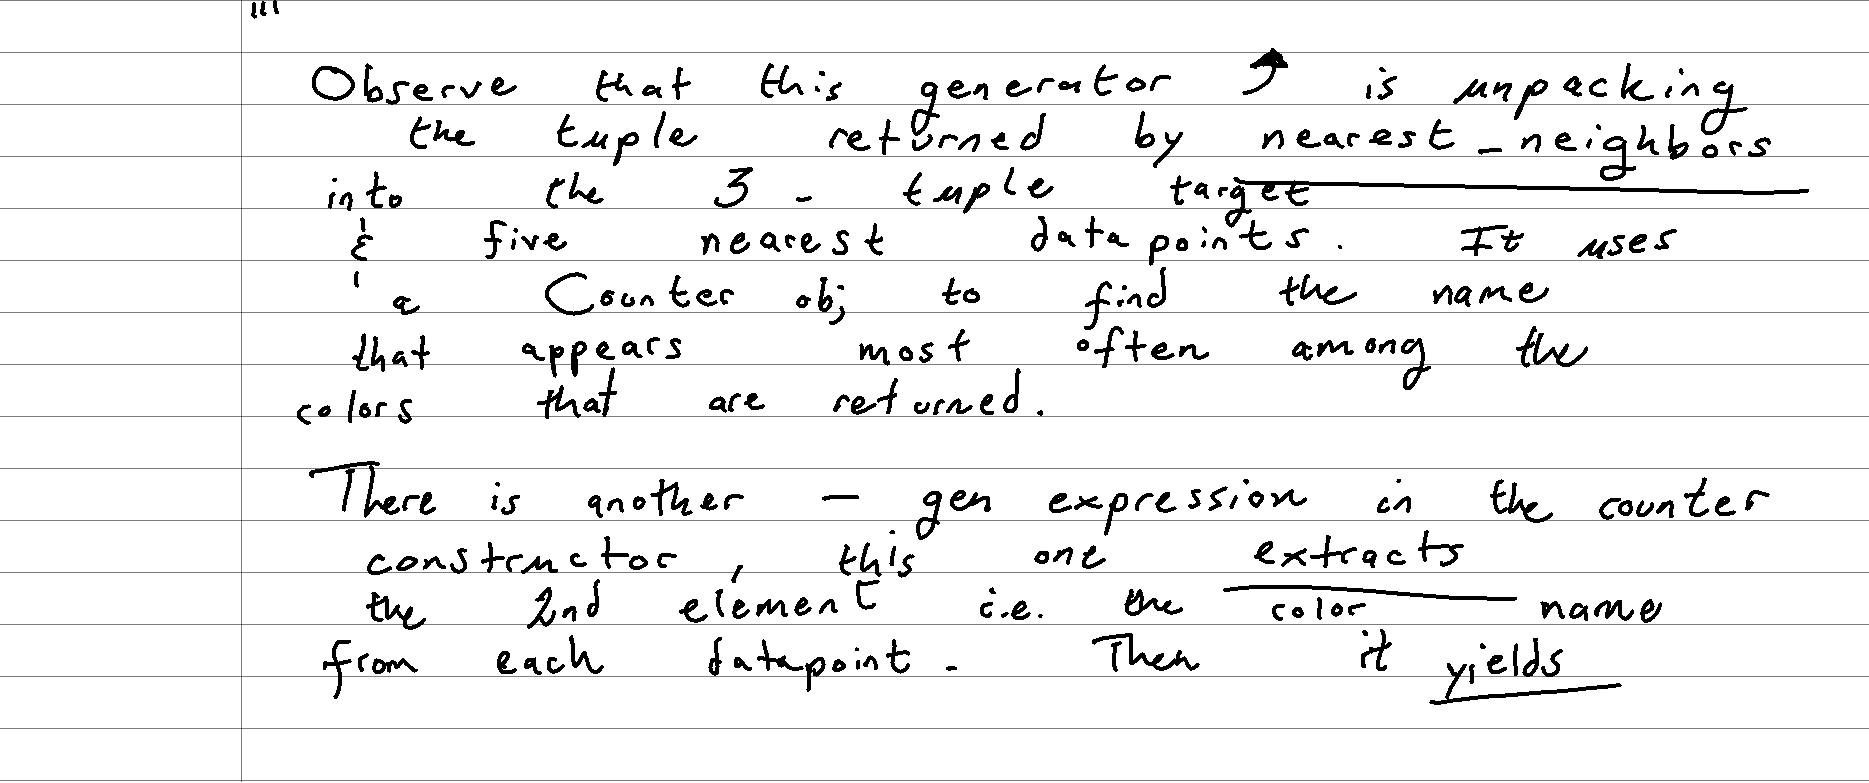 Observe that this generator is unpacking
the tuple returned by nearest_neighbors
into the 3-tuple target
& five nearest datapoints. It uses
a Counter obj to find the name
that appears most often among the
colors that are returned.
There is another - gen expression in the counter
constructor, this one extracts
the 2nd element i.e. the color name
from each datapoint. Then it yields